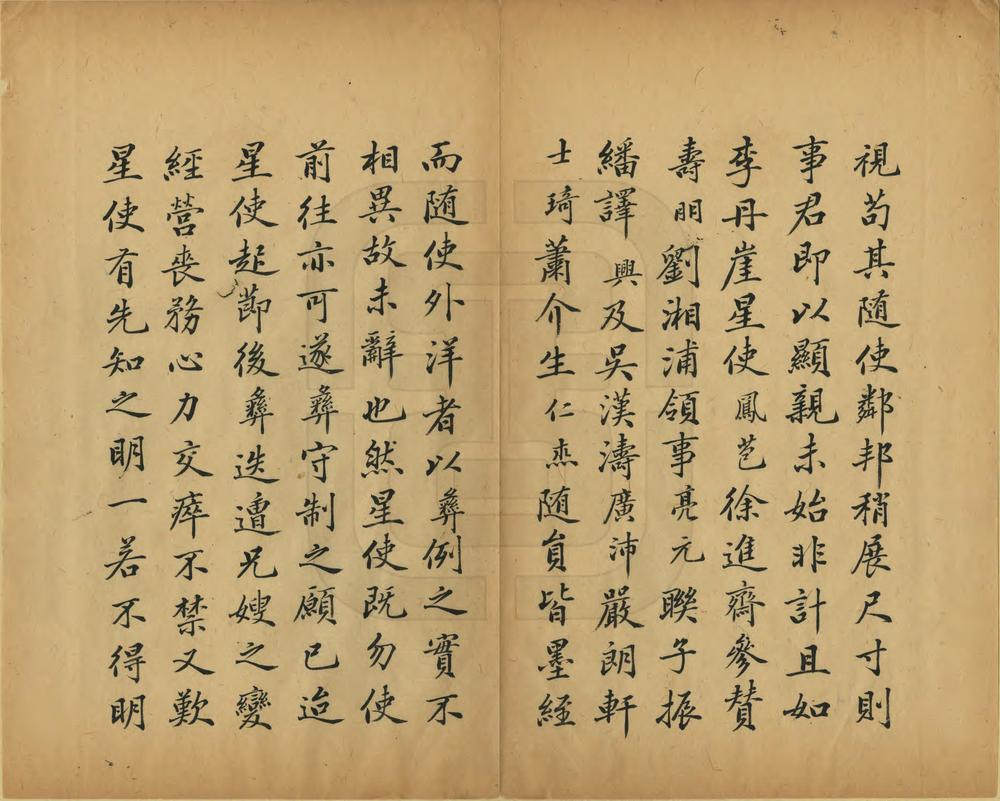 視苟其隨使鄰邦稍展尺寸則
事君即以顯親未始非計且如
李丹崖星使鳳苞徐進齋參贊
壽朋劉湘浦領事亮元聯子振
繙譯興及吳漢濤廣沛嚴朗軒
士琦蕭介生仁杰随員皆墨絰
而随使外洋者以彝例之實不
相異故未辭也然星使既勿使
前往亦可遂彝守制之願已迨
星使起節後彝迭遭兄嫂之變
經營喪務心力交瘁不禁又歎
星使有先知之明一若不得明